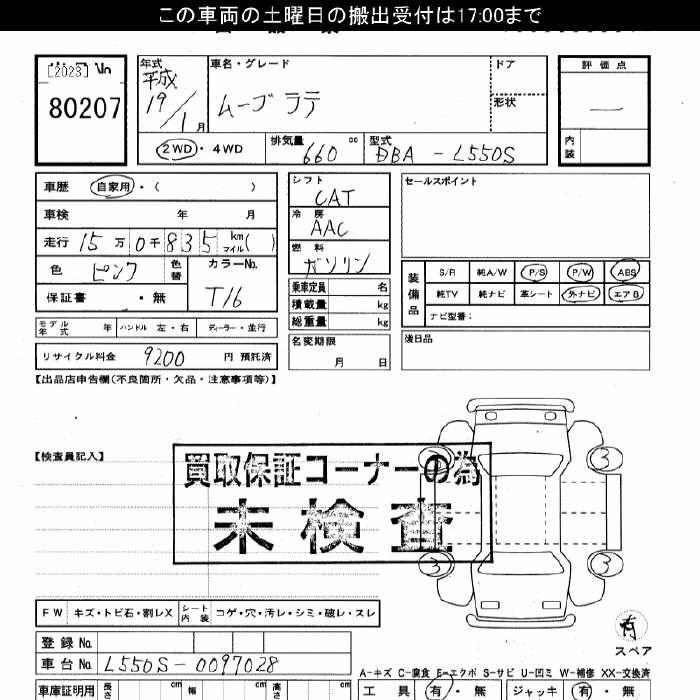 この車両の土曜日の搬出受付は17:00まで
[2023]
80207
年式
平成
19/1月
車名・グレード
ムーヴ ラテ
ドア
形状
評価点
—
内装
2WD・4WD
排気量 660 cc
型式 DBA-L550S
車歴 自家用・( )
車検 年 月
走行 15万0千835 km マイル( )
色 ピンク 色替
カラーNo. T16
保証書 ・無
モデル年式 年 ハンドル 左・右 ディーラー・並行
リサイクル料金 9200 円 預託済
シフト
CAT
冷房
AAC
燃料
ガソリン
乗車定員 名
積載量 kg
総重量 kg
名変期限
月 日
セールスポイント
装備品
S/R 純A/W P/S P/W ABS
純TV 純ナビ 革シート 外ナビ エアB
ナビ型番:
後日品
【出品店申告欄(不良箇所・欠品・注意事項等)】
【検査員記入】
買取保証コーナーの為
未検査
3 3
3 3
有
スペア
FW キズ・トビ石・割レX シート内装 コゲ・穴・汚レ・シミ・破レ・スレ
登録No.
車台No. L550S-0097028
A-キズ C-腐食 E-エクボ S-サビ U-凹ミ W-補修 XX-交換済
車庫証明用 長さ cm 幅 cm 高さ cm
工具 有・無 ジャッキ 有・無